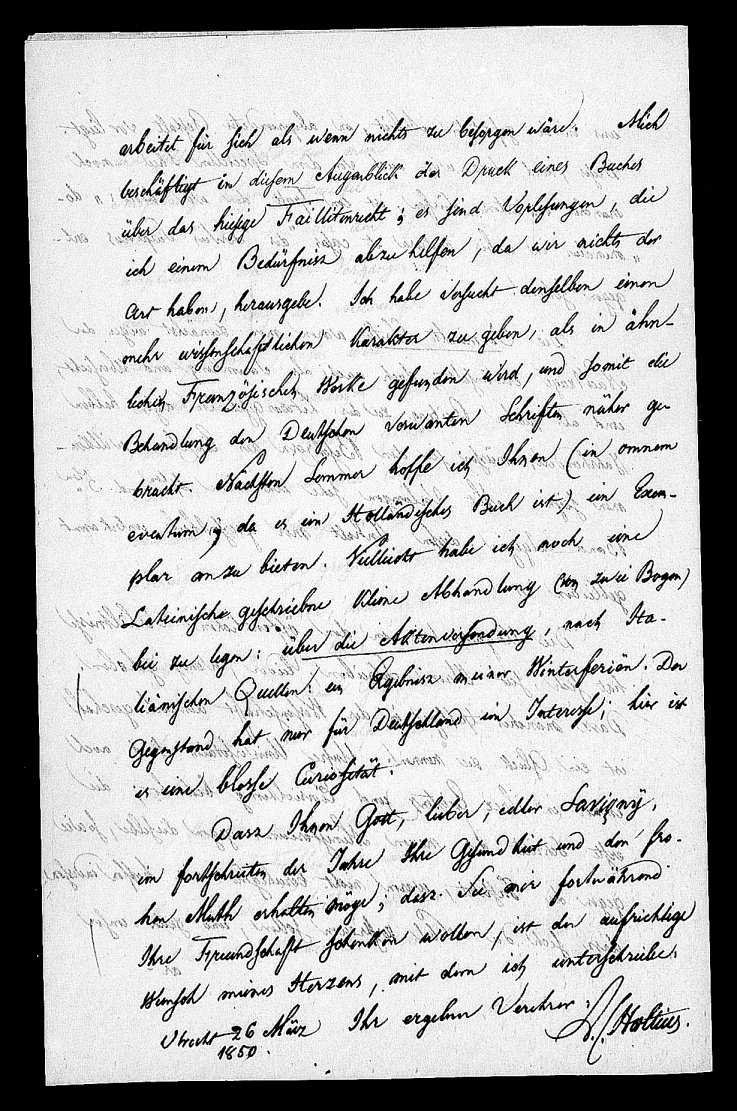 arbeitet für sich als wenn nichts zu besorgen wäre. Mich
beschäftigt in diesem Augenblick der Druck eines Buches
über das hiesige Faillitenrecht; es sind Vorlesungen, die
ich einem Bedürfnisz abzuhelfen, da wir nichts der
Art haben, herausgebe. Ich habe versucht denselben einen
mehr wissenschaftlichen Karakter zu geben, als in ähn-
lichen Französischen Werke gefunden wird, und somit die
Behandlung den Deutschen verwanten Schriften näher ge-
bracht. Nächsten Sommer hoffe ich Ihnen (in omnem
eventum, da es ein Holländisches Buch ist) ein Exem-
plar anzubieten. Vielleicht habe ich noch eine
Lateinische geschriebne kleine Abhandlung (von zwei Bogen)
bei zu legen: über die Aktenversendung, nach Ita-
liänischen Quellen: ein Ergebnisz meiner Winterferiën. Der
Gegenstand hat nur für Deutschland ein Interesse; hier ist
es eine blosse Curiosität.
Dasz Ihnen Gott, lieber, edler Savigny,
im fortschreiten der Jahre Ihre Gesundheit und den fro-
hen Muth erhalten möge; dasz Sie mir fortwährend
Ihre Freundschafft schenken wollen, ist der aufrichtige
Wunsch meines Herzens, mit dem ich unterschreibe:
Utrecht 26 März Ihr ergebner Verehrer:
1850. Holtius.